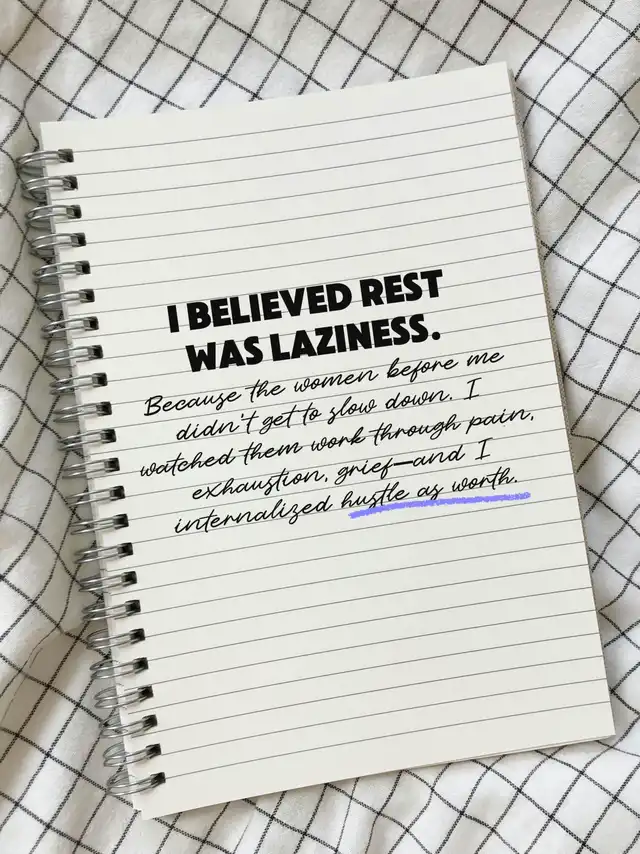 I BELIEVED REST
WAS LAZINESS.
Because the women before me
didn't get to slow down. I
watched them work through pain,
exhaustion, grief—and I
internalized hustle as worth.